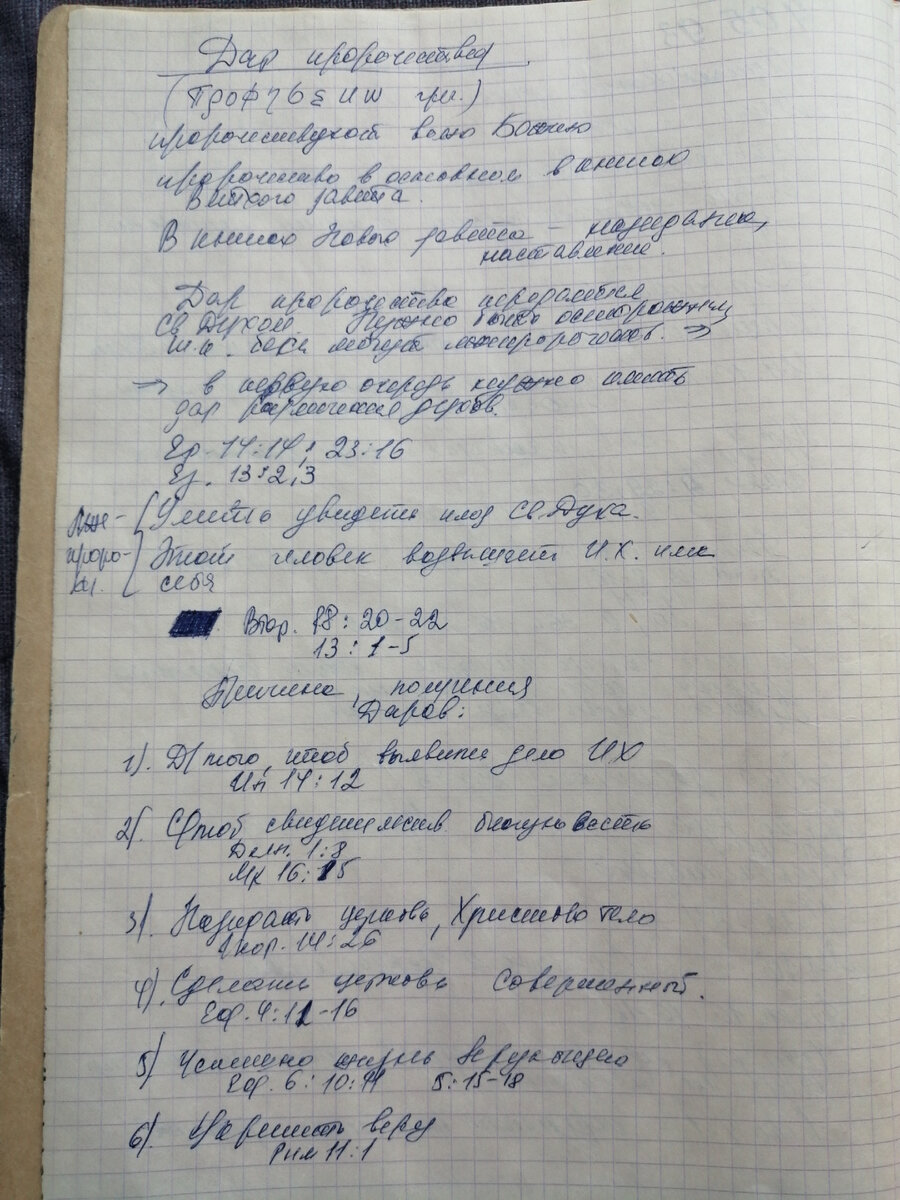 Дар пророчества
(Проф η б ε и ω гр.)
пророчествуют волю Божию
пророчество в основном в книгах
Ветхого завета.
В книгах Нового завета – назидание,
наставление.
Дар пророчества передаётся
Св. Духом. Нужно быть осторожным
т.к. бесы могут пророчествов. ⇒
⇒ в первую очередь нужно иметь
дар различения духов.
Ер. 14:14; 23:16
Ез. 13:2,3
Лже-
проро-
ки.
Уметь увидеть плод Св. Духа.
Этот человек возвышает И.Х. или
себя
Втор. 18:20-22
13:1-5
Причина получения
Даров:
1). Д/того, чтоб выявить дело ИХ
Ин 14:12
2). Чтоб свидетельств. благую весть
Деян. 1:8
Мк 16:15
3). Назидать церковь, Христово тело
1 кор. 14:26
4). Сделать церковь совершенный.
Еф. 4:11-16
5) жизнь верующего
Еф. 6:10-11 5:15-18
6). веру
Рим 11:1